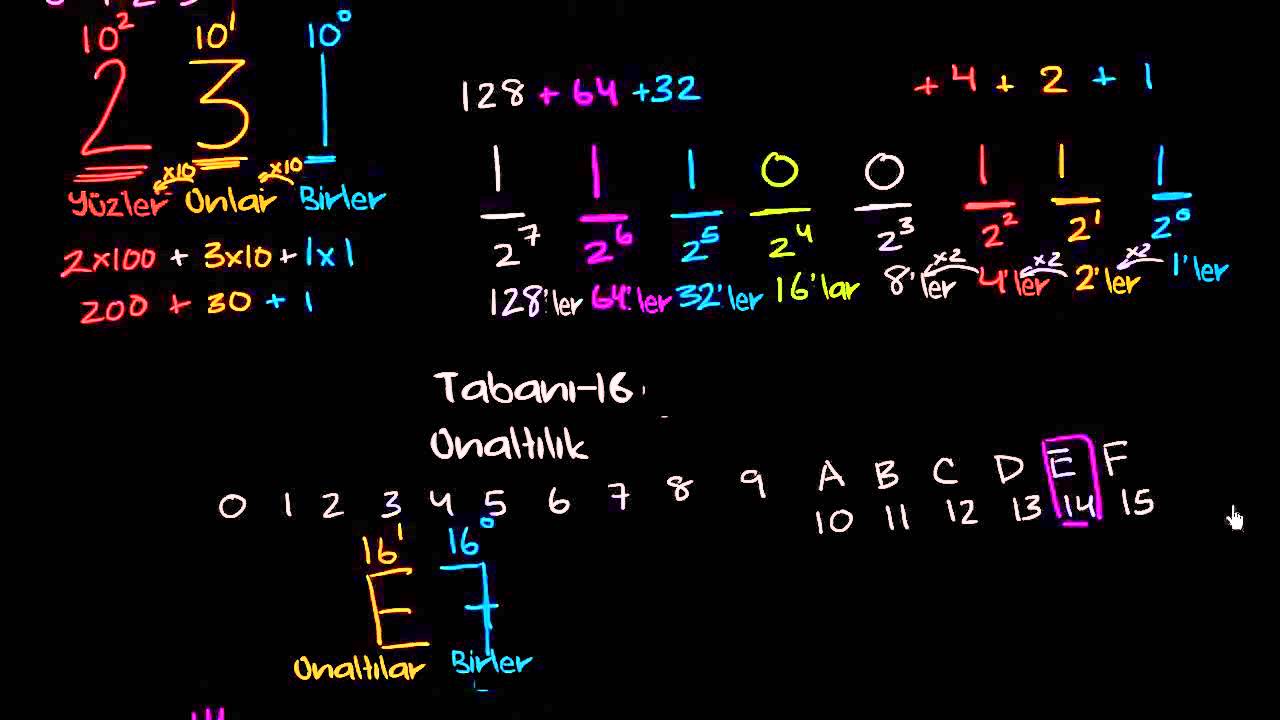 10² 10¹ 10⁰
2 3 1
x10 x10
Yüzler Onlar Birler
2x100 + 3x10 + 1x1
200 + 30 + 1
128 + 64 +32 +4 + 2 + 1
1 1 1 0 0 1 1 1
2⁷ 2⁶ 2⁵ 2⁴ 2³ 2² 2¹ 2⁰
x2 x2 x2
128'ler 64'ler 32'ler 16'lar 8'ler 4'ler 2'ler 1'ler
Tabanı-16
Onaltılık
0 1 2 3 4 5 6 7 8 9 A B C D E F
10 11 12 13 14 15
16¹ 16⁰
E 7
Onaltılar Birler